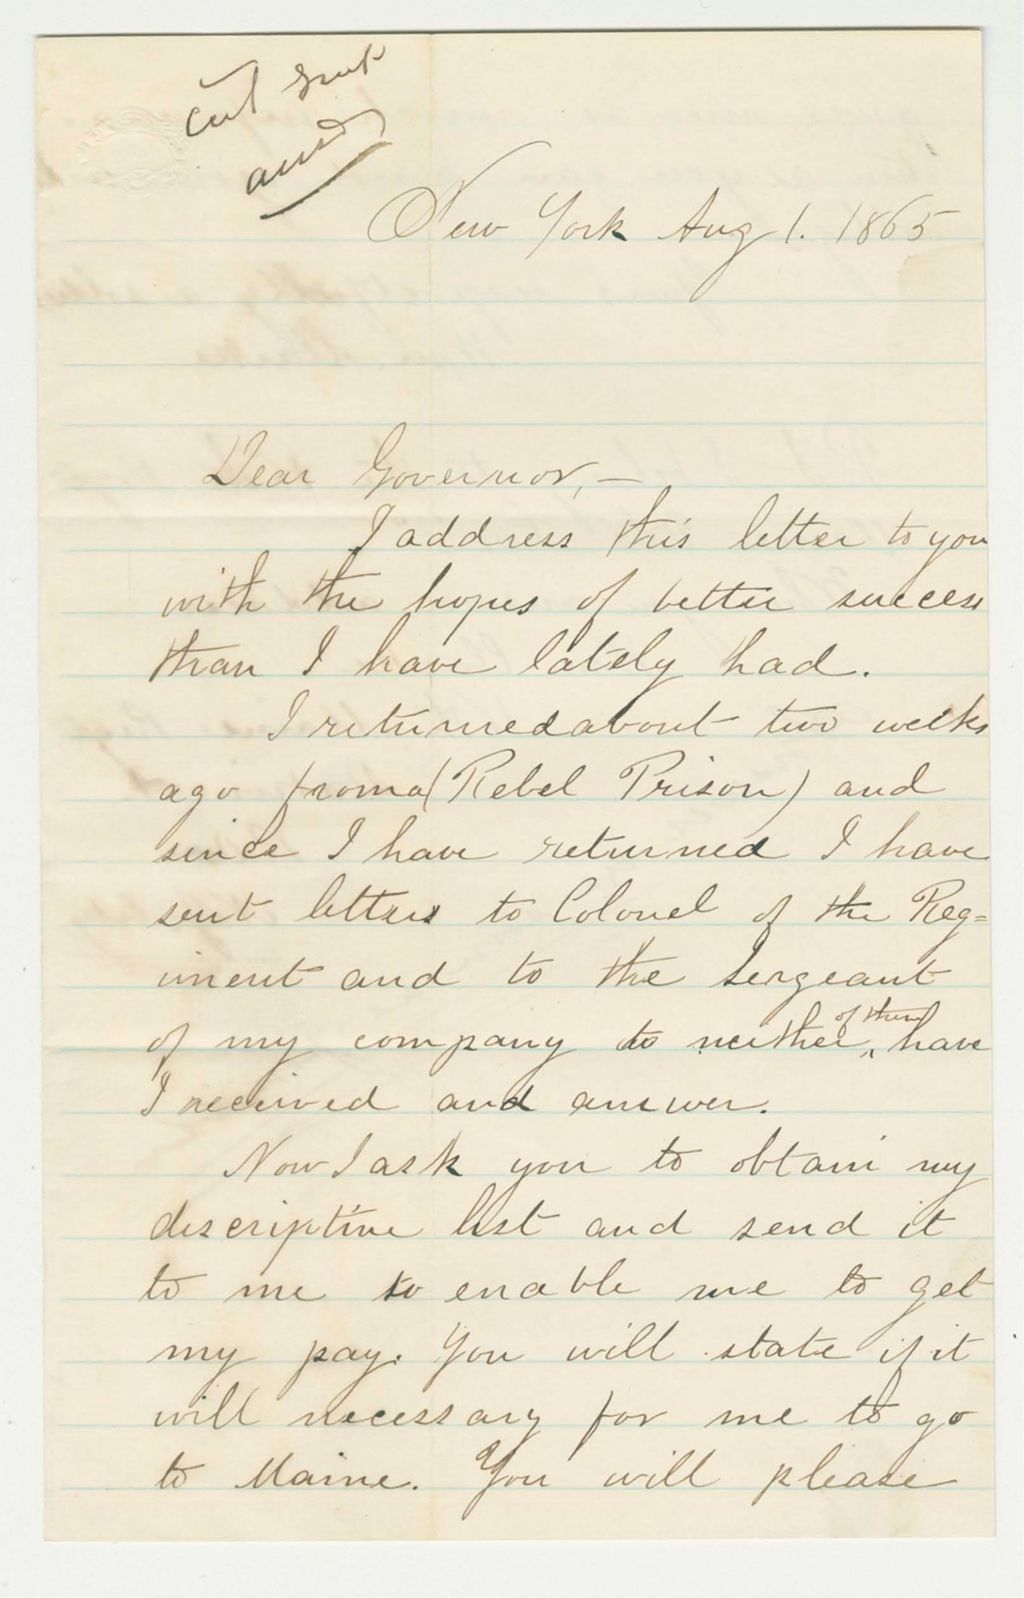 cert sent
ansd
New York Aug 1. 1865
Dear Governor,—
I address this letter to you
with the hopes of better success
than I have lately had.
I returned about two weeks
ago from a (Rebel Prison) and
since I have returned I have
sent letters to Colonel of the Reg=
iment and to the Sergeant
of my company to neither of them have
I received and answer.
Now I ask you to obtain my
descriptive list and send it
to me to enable me to get
my pay. You will state if it
will necessary for me to go
to Maine. You will please